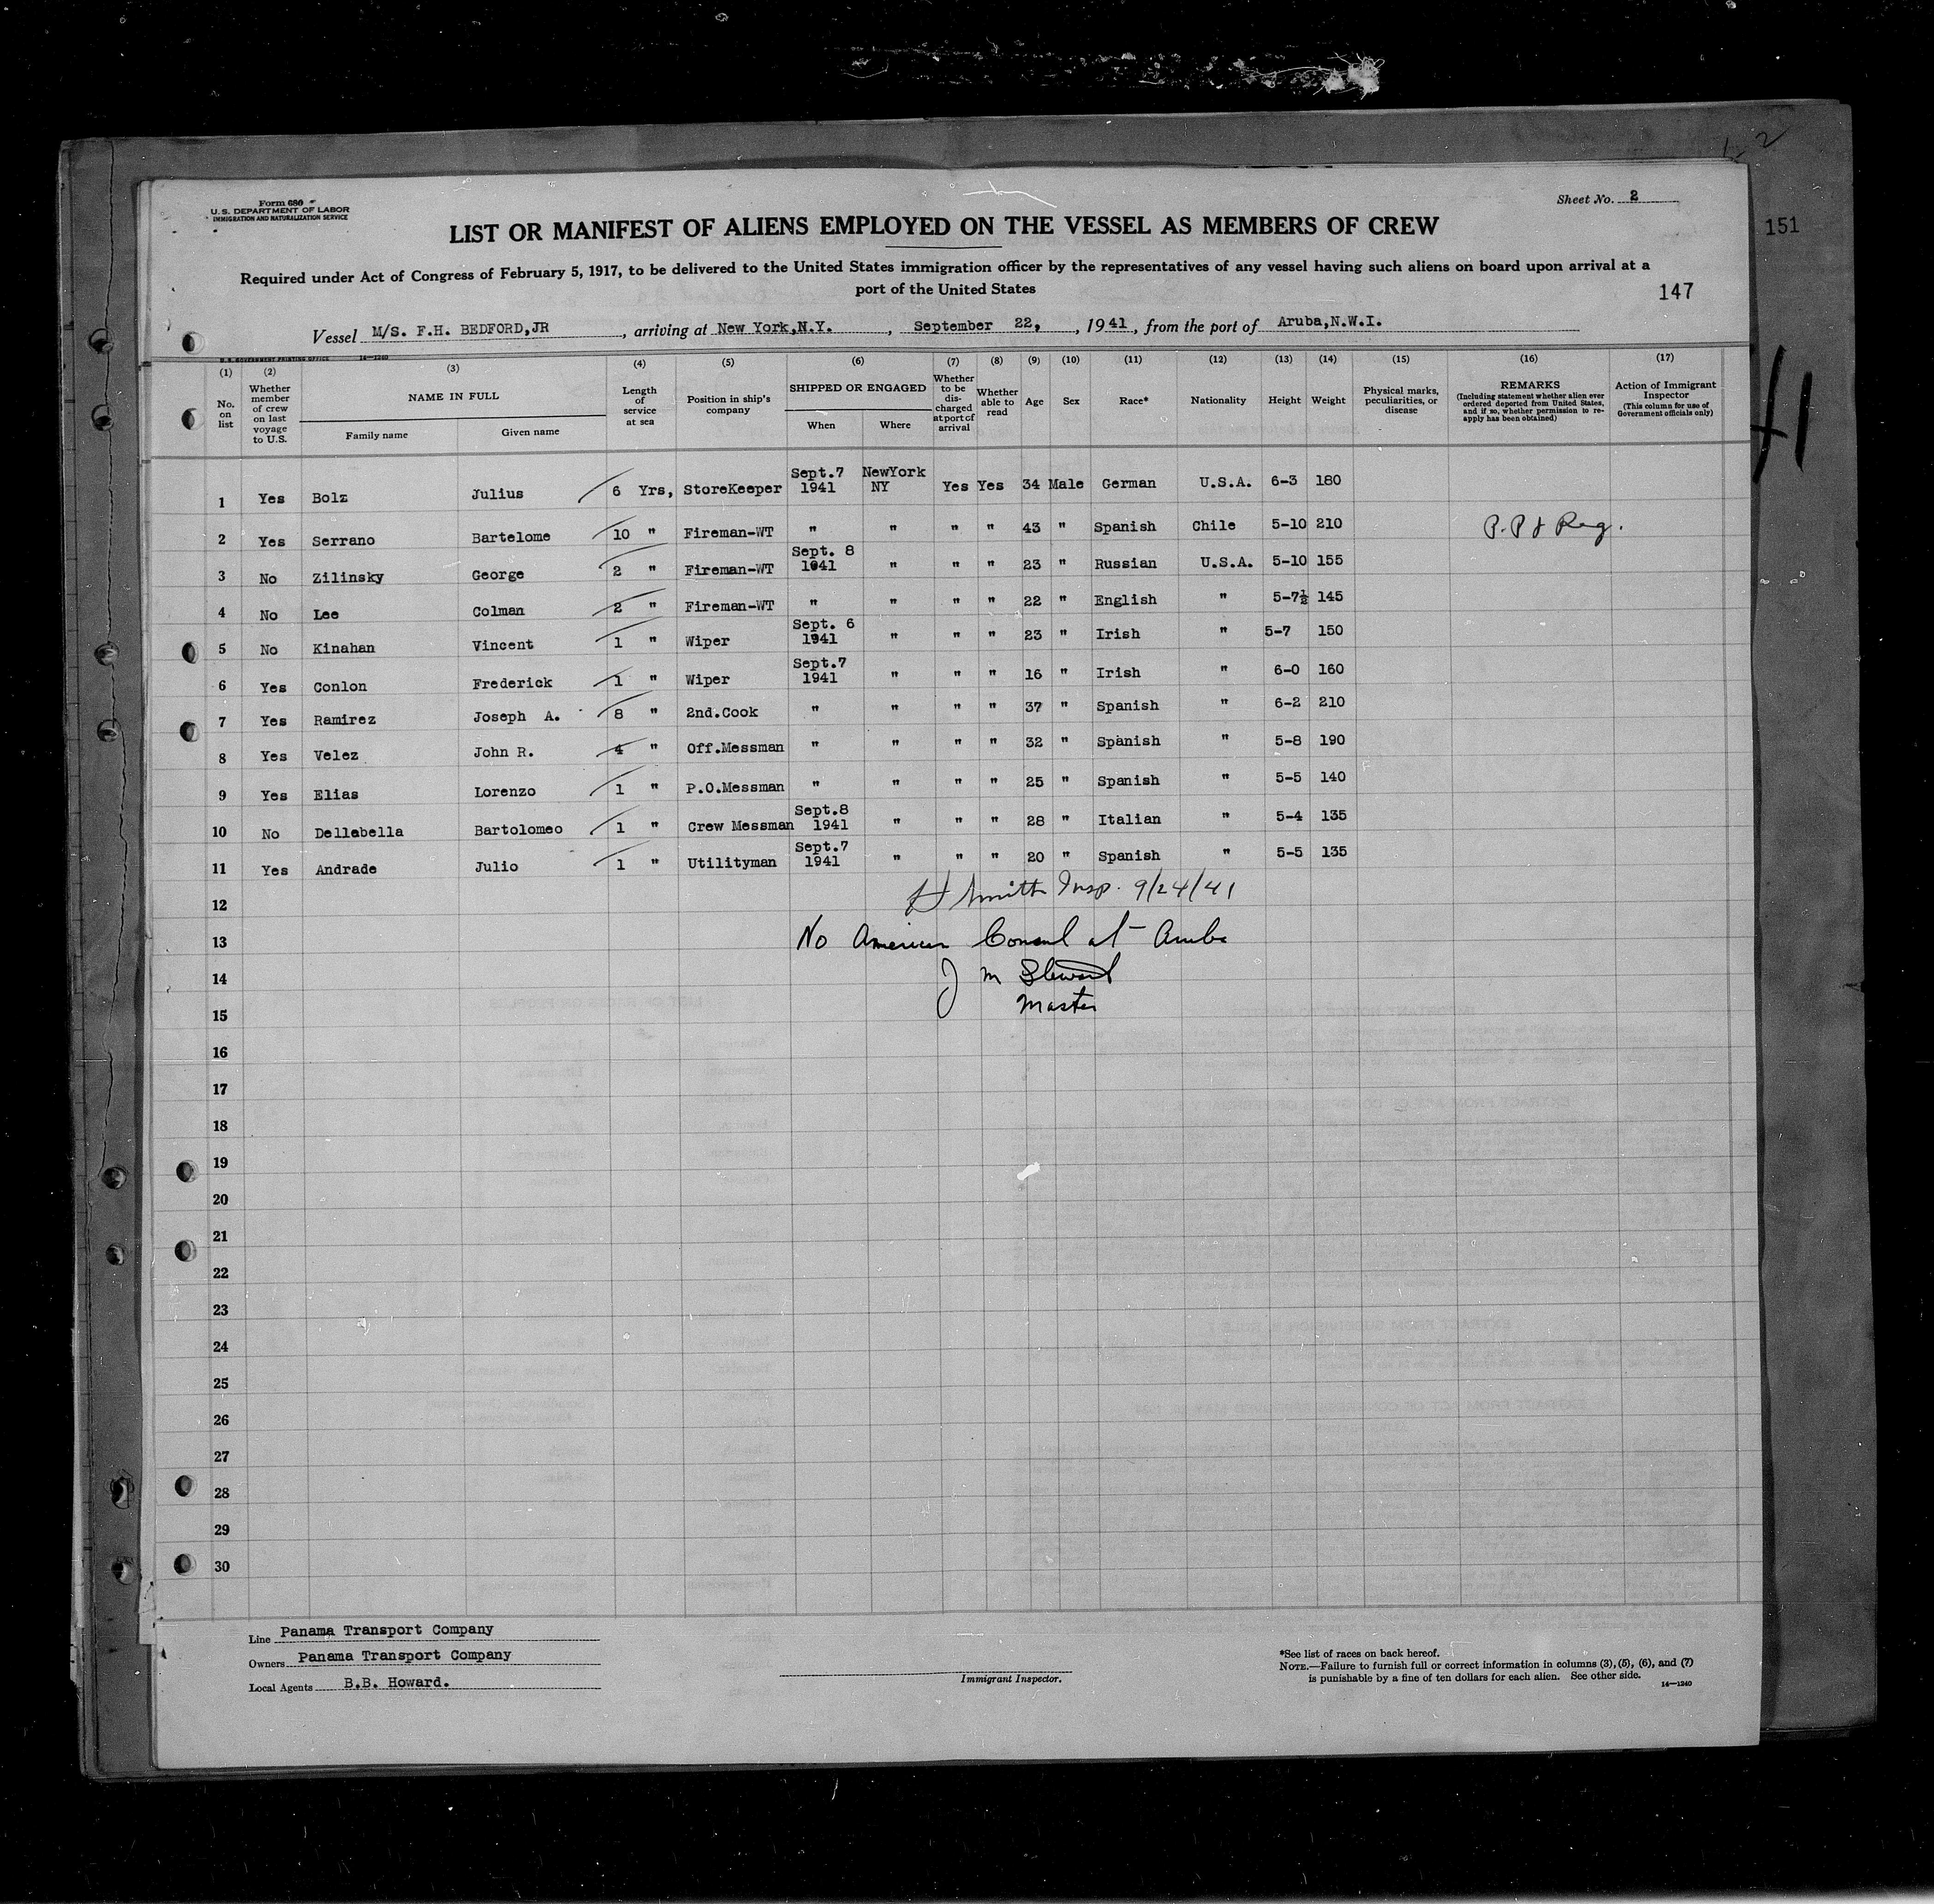 Form 680
U. S. DEPARTMENT OF LABOR
IMMIGRATION AND NATURALIZATION SERVICE
Sheet No. 2
LIST OR MANIFEST OF ALIENS EMPLOYED ON THE VESSEL AS MEMBERS OF CREW
151
Required under Act of Congress of February 5, 1917, to be delivered to the United States immigration officer by the representatives of any vessel having such aliens on board upon arrival at a
port of the United States
147
Vessel M/S. F.H. BEDFORD,JR, arriving at New York,N.Y., September 22, 1941, from the port of Aruba,N.W.I.
U. S. GOVERNMENT PRINTING OFFICE 14—1240
(1) No. on list
(2) Whether member of crew on last voyage to U.S.
(3) NAME IN FULL Family name Given name
(4) Length of service at sea
(5) Position in ship's company
(6) SHIPPED OR ENGAGED When Where
(7) Whether to be discharged at port of arrival
(8) Whether able to read
(9) Age
(10) Sex
(11) Race*
(12) Nationality
(13) Height
(14) Weight
(15) Physical marks, peculiarities, or disease
(16) REMARKS (Including statement whether alien ever ordered deported from United States, and if so, whether permission to re-apply has been obtained)
(17) Action of Immigrant Inspector (This column for use of Government officials only)
1 Yes Bolz Julius 6 Yrs, StoreKeeper Sept.7 1941 NewYork NY Yes Yes 34 Male German U.S.A. 6-3 180
2 Yes Serrano Bartelome 10 " Fireman-WT " " " " 43 " Spanish Chile 5-10 210 P.P & Reg.
3 No Zilinsky George 2 " Fireman-WT Sept. 8 1941 " " " 23 " Russian U.S.A. 5-10 155
4 No Lee Colman 2 " Fireman-WT " " " " 22 " English " 5-7½ 145
5 No Kinahan Vincent 1 " Wiper Sept. 6 1941 " " " 23 " Irish " 5-7 150
6 Yes Conlon Frederick 1 " Wiper Sept.7 1941 " " " 16 " Irish " 6-0 160
7 Yes Ramirez Joseph A. 8 " 2nd.Cook " " " " 37 " Spanish " 6-2 210
8 Yes Velez John R. 4 " Off.Messman " " " " 32 " Spanish " 5-8 190
9 Yes Elias Lorenzo 1 " P.O.Messman " " " " 25 " Spanish " 5-5 140
10 No Dellabella Bartolomeo 1 " Crew Messman Sept.8 1941 " " " 28 " Italian " 5-4 135
11 Yes Andrade Julio 1 " Utilityman Sept.7 1941 " " " 20 " Spanish " 5-5 135
12 H Smith Insp. 9/24/41
13 No American Consul at Aruba
14 J M Stewart
15 Master
16
17
18
19
20
21
22
23
24
25
26
27
28
29
30
Line Panama Transport Company
Owners Panama Transport Company
Local Agents B.B. Howard.
Immigrant Inspector.
*See list of races on back hereof.
NOTE.—Failure to furnish full or correct information in columns (3), (5), (6), and (7)
is punishable by a fine of ten dollars for each alien. See other side.
14—1240